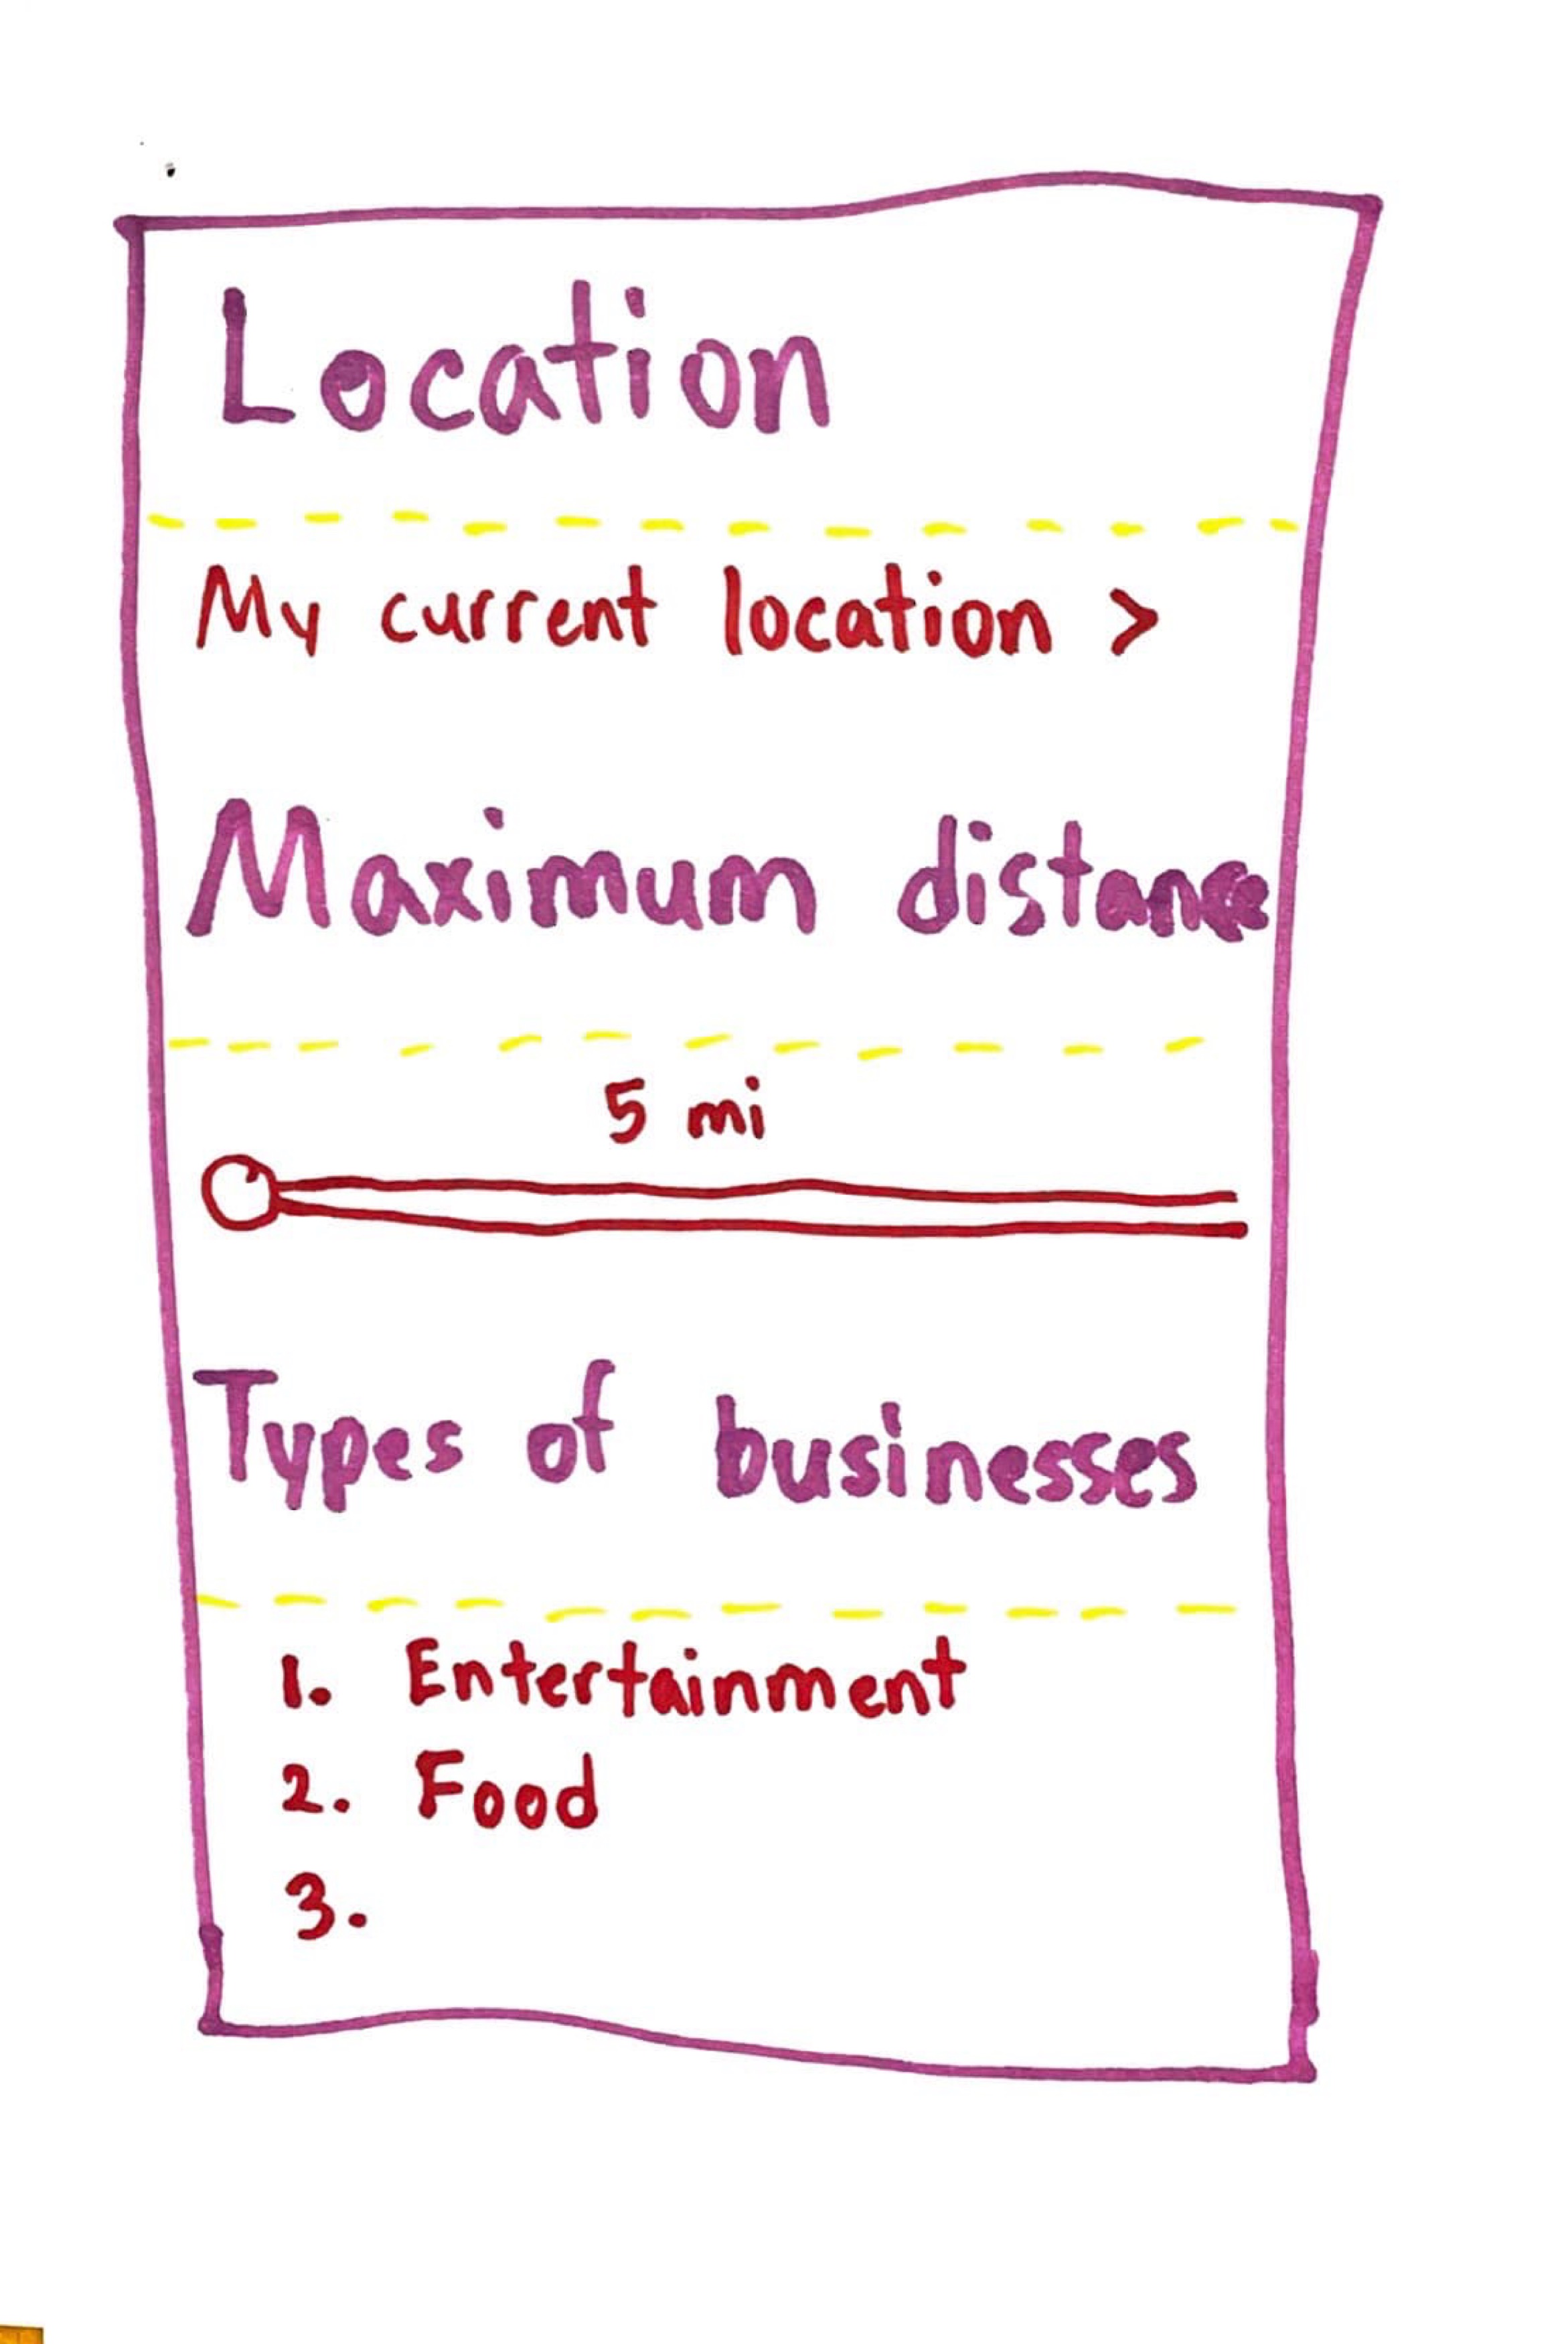 Location
My current location >
Maximum distance
5 mi
Types of businesses
1. Entertainment
2. Food
3.